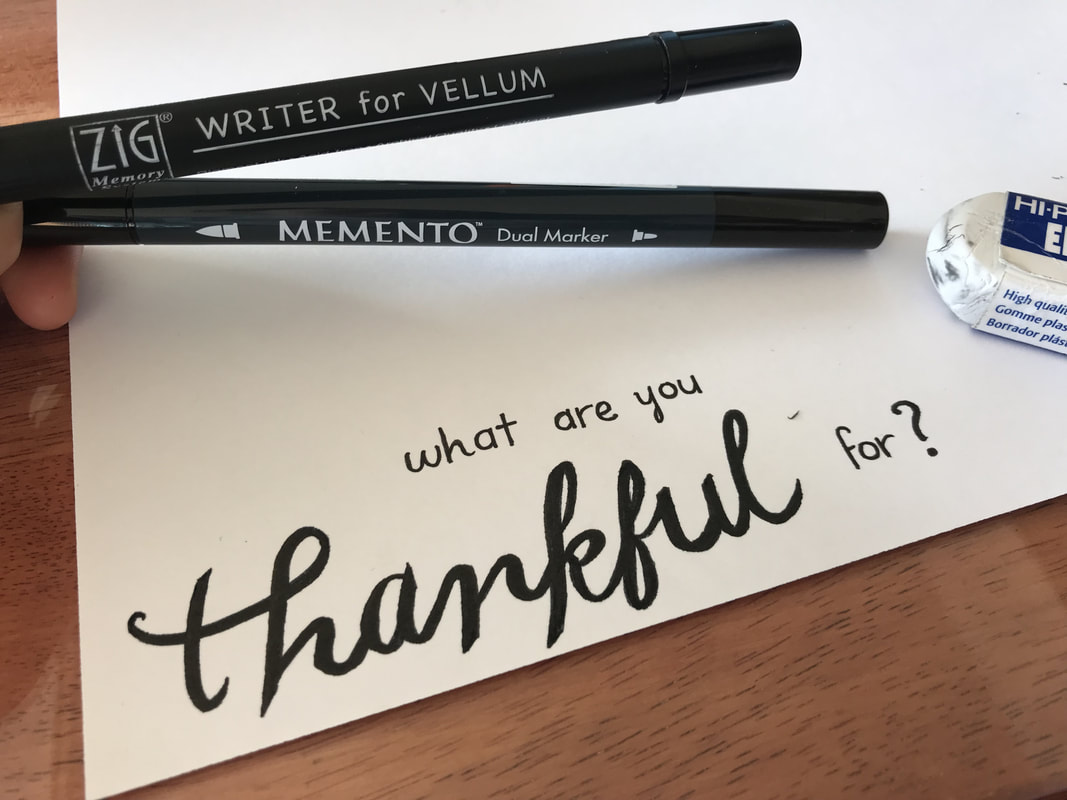 ZIG®
Memory
WRITER for VELLUM
MEMENTO™ Dual Marker
HI-P
High quali
Gomme plas
Borrador plás
what are you
thankful for?